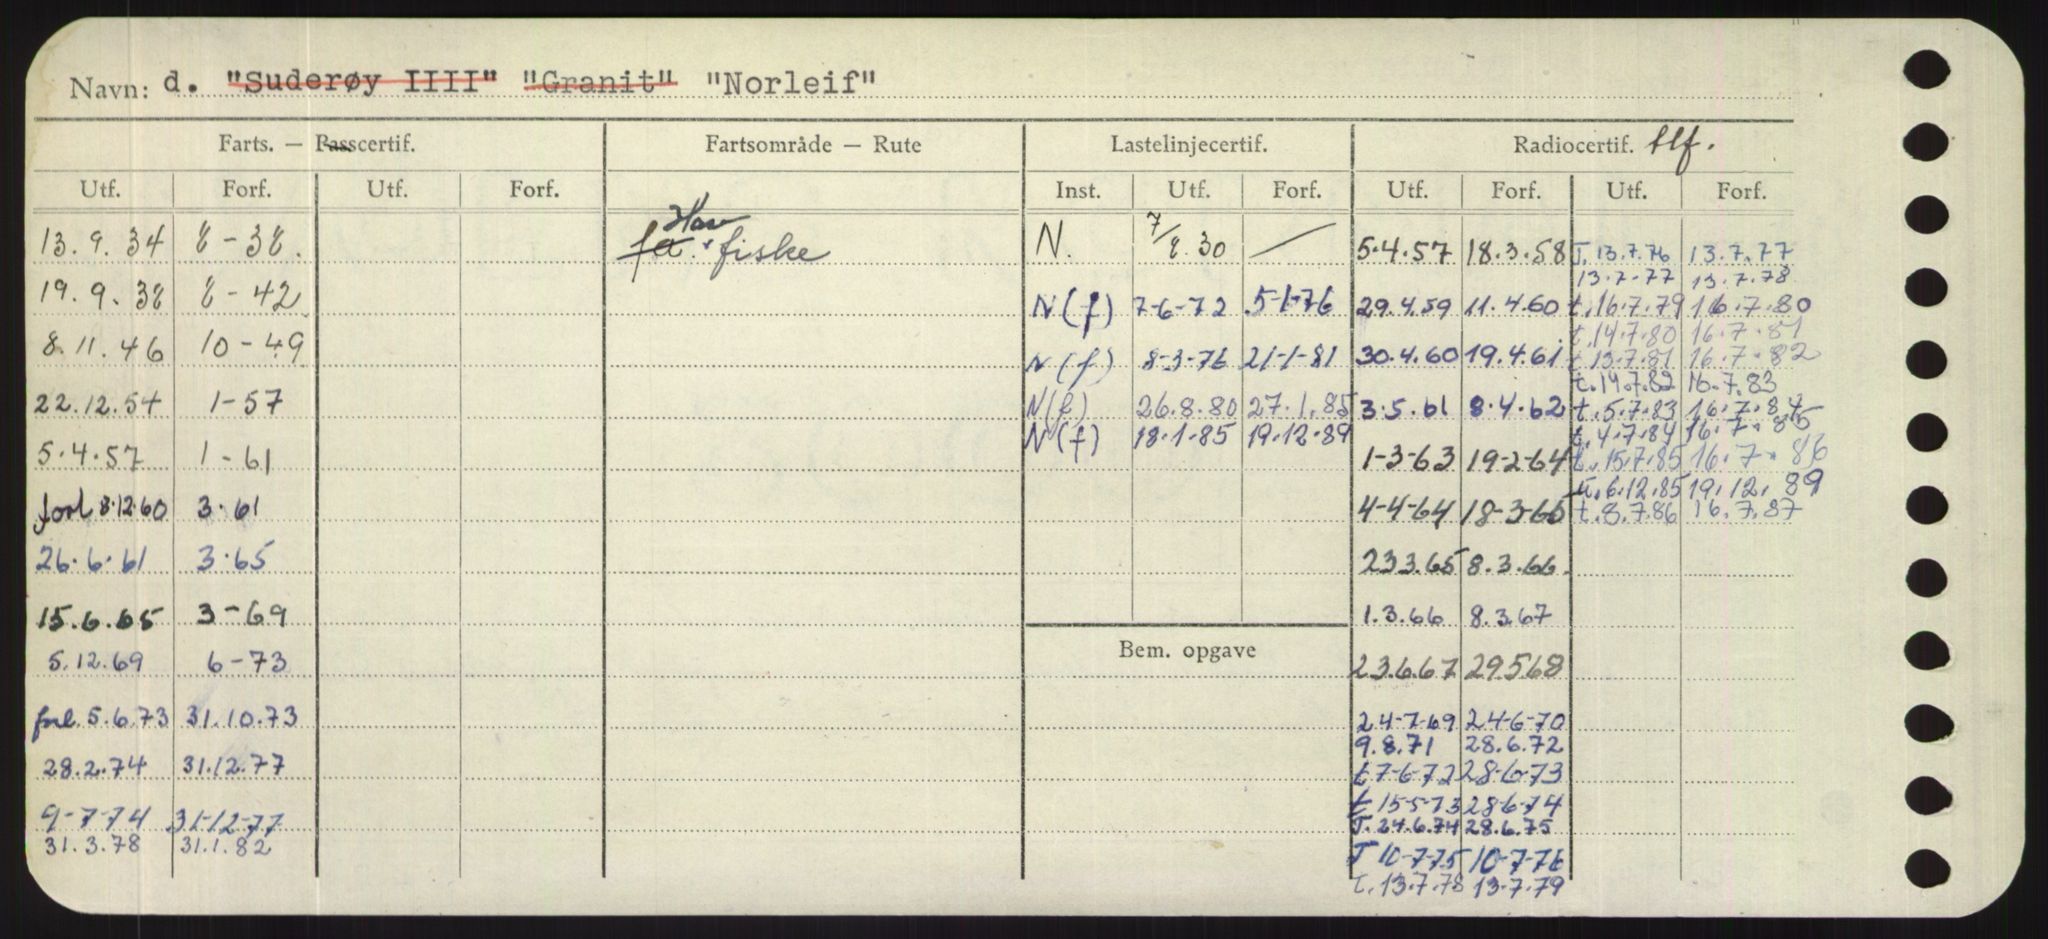 Navn: d. "Suderøy IIII" "Granit" "Norleif"
Farts. — Passcertif. Fartsområde — Rute Lastelinjecertif. Radiocertif. tlf.
Utf. Forf. Utf. Forf. Inst. Utf. Forf. Utf. Forf. Utf. Forf.
Hav
13.9.34 8-38. fa. fiske N. 7/8.30 — 5.4.57 18.3.58 T. 13.7.76 13.7.77
13.7.77 13.7.78
19.9.38 8-42 N(f) 7-6-72 5-1-76 29.4.59 11.4.60 t. 16.7.79 16.7.80
t. 14.7.80 16.7.81
8.11.46 10-49 N(f) 8-3-76 21-1-81 30.4.60 19.4.61 t. 13.7.81 16.7.82
t. 14.7.82 16.7.83
22.12.54 1-57 N(f) 26.8.80 27.1.85 3.5.61 8.4.62 t. 5.7.83 16.7.84
N(f) 18.1.85 19.12.89 t. 4.7.84 16.7.85
5.4.57 1-61 1-3-63 19-2-64 t. 15.7.85 16.7.86
t. 6.12.85 19.12.89
forl 8.12.60 3.61 4-4-64 18-3-65 t. 8.7.86 16.7.87
26.6.61 3.65 233.65 8.3.66.
15.6.65 3-69 1.3.66 8.3.67
5.12.69 6-73 Bem. opgave 23.6.67 29.5.68
forl. 5.6.73 31.10.73 24-7-69 24-6-70
9.8.71 28.6.72
28.2.74 31.12.77 t 7-6-72 28-6-73
9-7-74 31-12-77 t 15-5-73 28-6-74
T. 24.6.74 28.6.75
31.3.78 31.1.82 T 10-7-75 10-7-76
t. 13.7.78 13.7.79